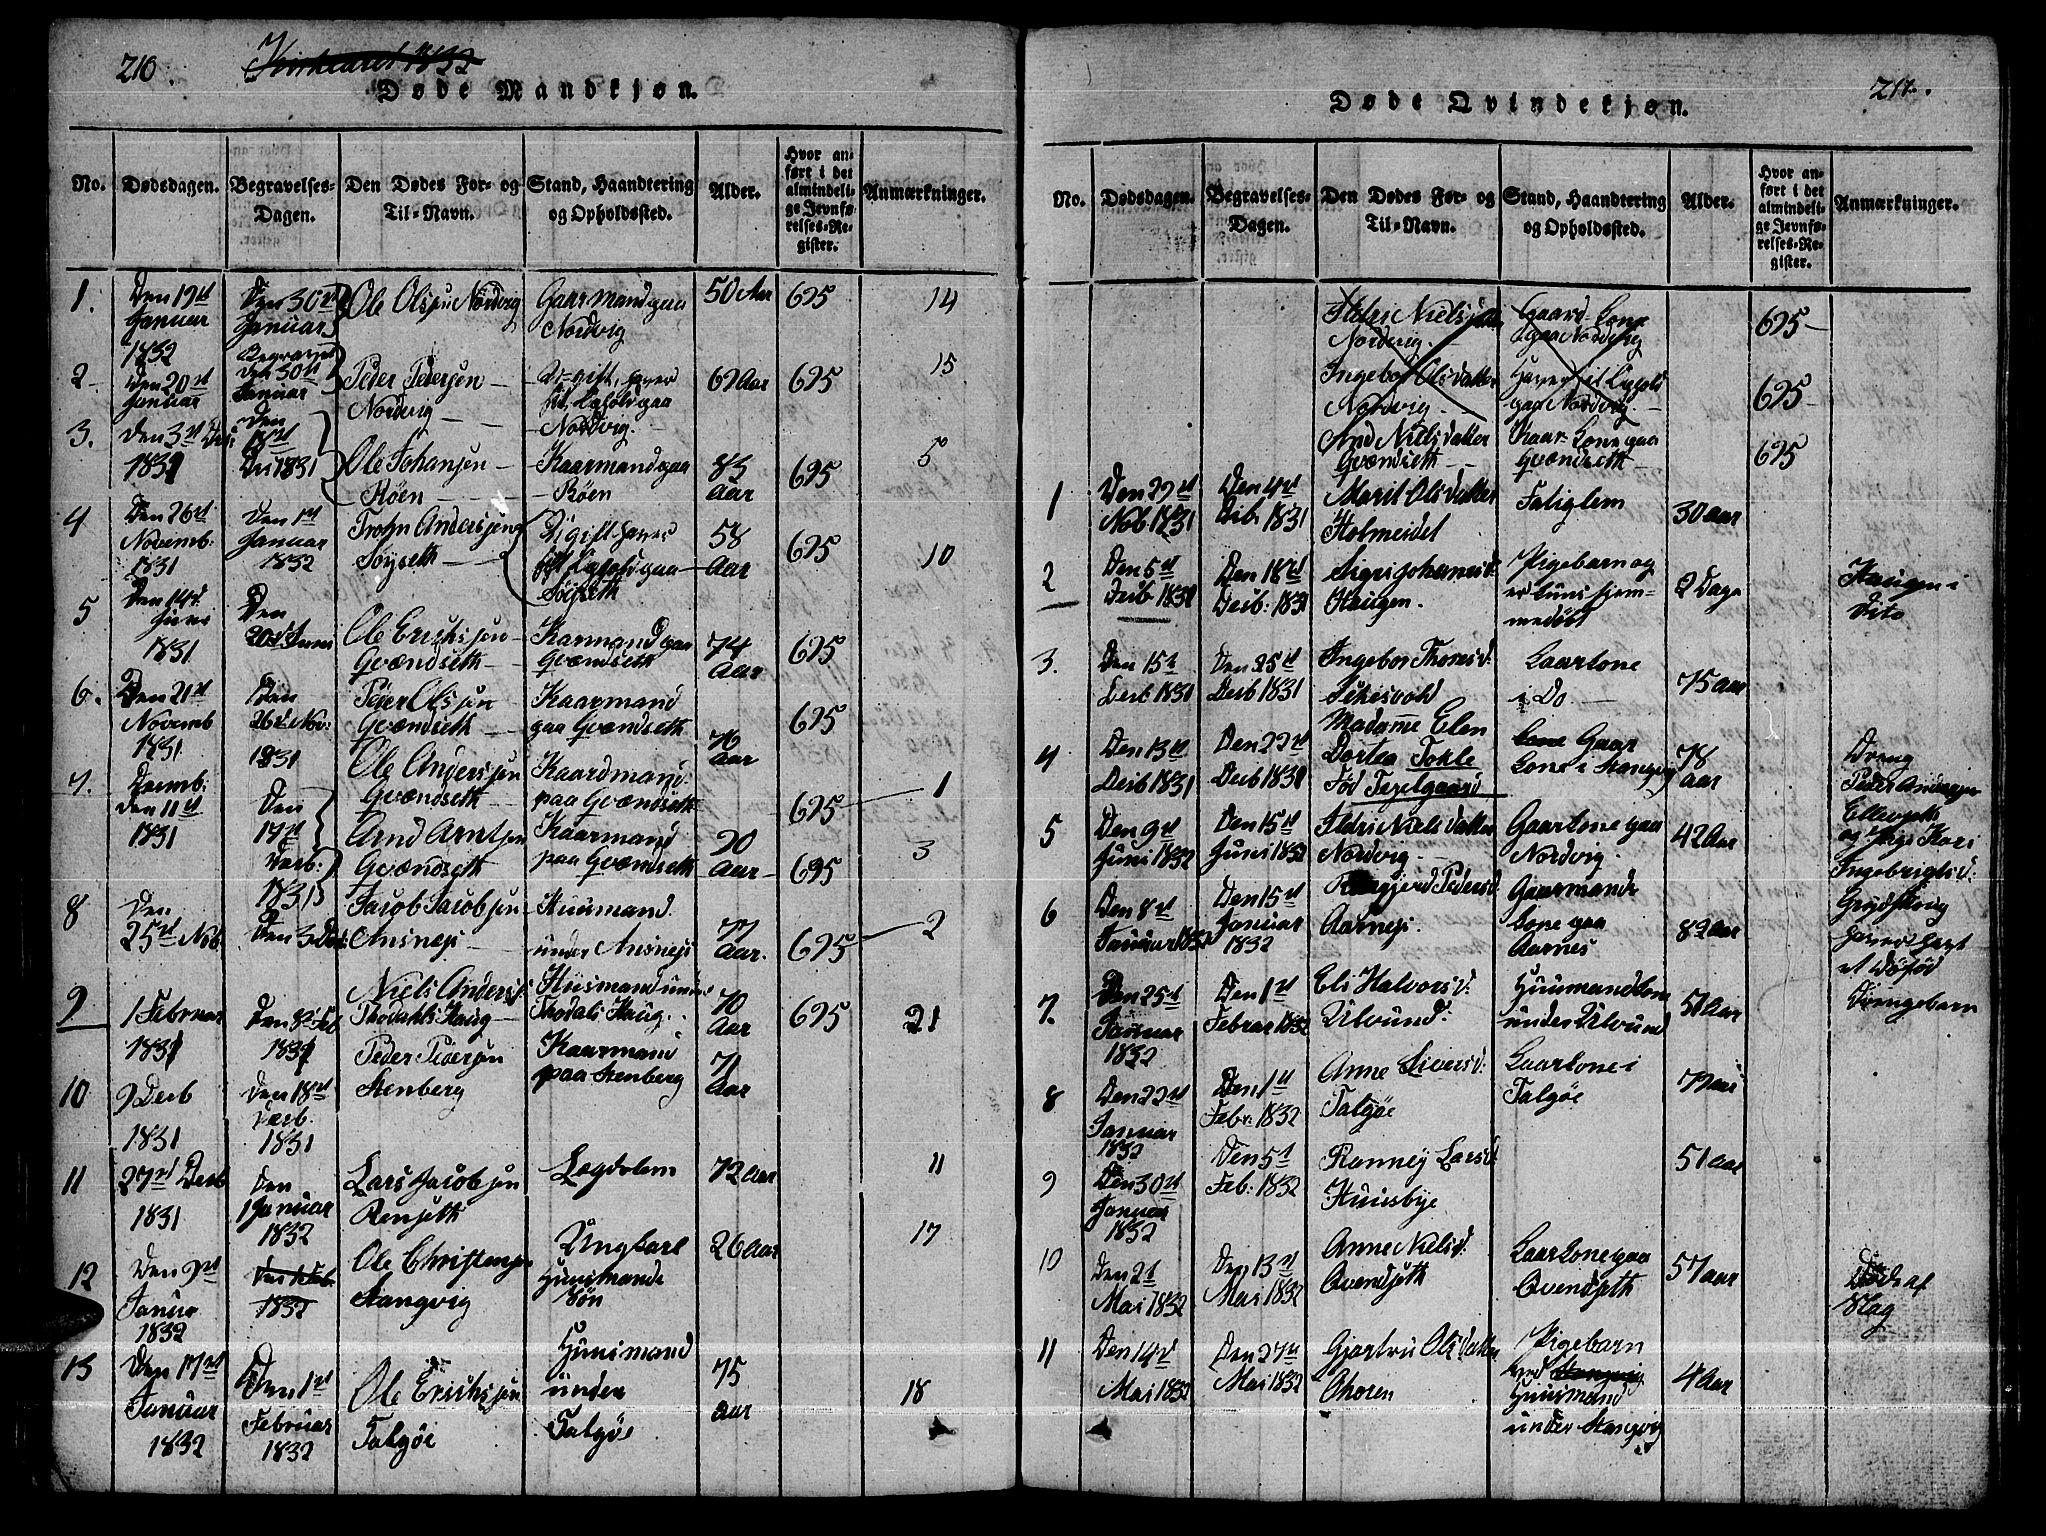 210.
Kirkeaaret 1832
Døde Mandkjøn.
No.
Dødsdagen.
Begravelses-
Dagen.
Den Dødes For- og
Til-Navn.
Stand, Haandtering
og Opholdssted.
Alder.
Hvor an-
ført i det
almindeli-
ge Jevnfø-
relses-Re-
gister.
Anmærkninger.
1.
Den 19de
Januar
1832
Den 30te
Januar
Begravet
Ole Olsen Nordvig
Gaarmand paa
Nordvig
50 Aar
695
14
2
den 20de
Januar
den 30te
Januar
Peder Pedersen
Nordvig
Nordvig.
69 Aar
695
15
3.
1831
den
Des 1831
Ole Johansen
Røen
Kaarmand paa
Røen
83
Aar
695
5
4
Den 26de
Novemb.
1831
Den 1ste
Januar
1832
Trohn Andersen
Søyseth
Søyseth
58
Aar
695
10
5
Den 14de
Juni
1831
Den
20de Juni
Ole Erichsen
Gvændseth
Karmand paa
Gvændseth
74
Aar
695
6.
Den 21de
Novemb
1831
Den
26de Nov:
1831
Peder Olsen
Gvændseth
Kaarmand
paa Gvændseth
76
Aar
695
7.
Decemb.
den 11te
1831
Den
17de
Decb.
1831
Ole Andersen
Gvændseth
Kaardmand
paa Gvændseth
695
1
Arnd Arntsen
Gvændseth
Kaarmand
paa Gvændseth
20
Aar
695
3
8
Den
25de Nob
Den 3 Dec:
Jacob Jacobsen
Ansnes
Huusmand
under Ansnes
77
Aar.
695
2
9
1 Februar
1831
Den 8de Feb
1831
Niels Anders:
Thodahls Haug
Huusmand under
Thodals Haug.
70
Aar
695
21
10
9 Decb
1831
den 18de
Decb.
1831
Peder Pedersen
Stenberg
Kaarmand
paa Stenberg
71
Aar
11
27de Decb
1831
Den
1 Januar
1832
Lars Jacobsen
Renseth
Lægdslem
72 Aar
11
12
Den 9de
Januar
1832
1832
Ole Christensen
Stangvig
Ungkarl
Huusmands
Søn
26 Aar
17
13
Den 17de
Januar
1832
Den 1ste
Februar
1832
Ole Erichsen
Talgøe
Huusmand
under
Talgøe
75
Aar
18
211.
Døde Qvindekjøn.
No.
Dødsdagen.
Begravelses-
Dagen.
Den Dødes For- og
Til-Navn.
Stand, Haandtering
og Opholdssted.
Alder.
Hvor an-
ført i det
almindeli-
ge Jevnfø-
relses-Re-
gister.
Anmærkninger.
Nordvig.
Gaard Kone
paa Nordvig
695
Ingebor Olsdatter
Nordvig
paa Nordvig.
695
And Nielsdatter
Gvændseth
Kaar-Kone paa
Gvændseth
695
1
Den 29de
Nob 1831
Den 4de
Deib. 1831
Marit Olsdatter
Holmeidet
Fatiglem
30 Aar
2
Den 5te
Deib 1831
Den 18de
Deib: 1831
Haugen.
Pigebarn og
er kuns hjem-
medøbt
2 Dage
Haugen i
Dito
3.
Den 15de
Decb 1831
Den 25de
Decb 1831
Ingebor Thoresd:
Kaarkone
i Do.
75 Aar
4
Den 13de
Deib 1831
Den 22de
Deib 1831
Madamme Elen
Dortea Tokle
Fød Tegelgaard
Kone Gaar
Kone i Stangvig
78
Aar
Dreng
Peder Andersen
5
Den 9de
Juni 1832
Den 15de
Juni 1832
Nielsdatter
Nordvig
Gaarkone paa
Nordvig.
42 Aar
og Pige Kari
Ingebrigtsd:
6
Den 8de
Januar 1832
Den 15de
Januar
1832
Pedersd.
Aarnes.
Gaarmands
Kone paa
Aarnes
82 Aar
et Døfød
Drengebarn
7.
Den 25de
Januar
1832
Den 1ste
Februar 1832
Eli Halvorsd:
Ulvund:
Huusmandkone
under Ulvund
51 Aar
8
Den 22de
Januar
1832
Den 1ste
Febr: 1832
Anne Siversd:
Talgøe
Kaarkone i
Talgøe
79 Aar
9
Den 30te
Januar
1832
Den 5te
Feb: 1832
Ranney Larsd:
Huusbye
51 Aar
10
Den 2de
Mai 1832
Den 13de
Mai 1832
Anne Nielsd:
Qvendseth
Kaarkone paa
Qvendseth
57 Aar
Døde af
Slag
11
Den 14de
Mai 1832
Den 27de
Mai 1832
Gjertru Olsdatter
Choren
Pigebarn
Stangvig
Huusmand
under Stangvig
4 Aar